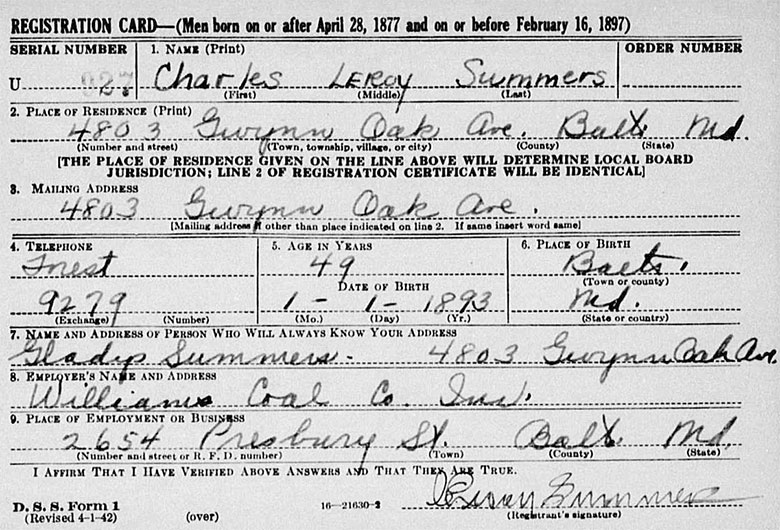 REGISTRATION CARD—(Men born on or after April 28, 1877 and on or before February 16, 1897)
SERIAL NUMBER 1. NAME (Print) ORDER NUMBER
U 027 Charles LEROY Summers
(First) (Middle) (Last)
2. PLACE OF RESIDENCE (Print)
4803 Gwynn Oak Ave. Balt. Md.
(Number and street) (Town, township, village, or city) (County) (State)
[THE PLACE OF RESIDENCE GIVEN ON THE LINE ABOVE WILL DETERMINE LOCAL BOARD
JURISDICTION; LINE 2 OF REGISTRATION CERTIFICATE WILL BE IDENTICAL]
3. MAILING ADDRESS
4803 Gwynn Oak Ave.
[Mailing address if other than place indicated on line 2. If same insert word same]
4. TELEPHONE 5. AGE IN YEARS 6. PLACE OF BIRTH
Forest 49 Balto.
DATE OF BIRTH (Town or county)
9279 1 - 1 - 1893 Md.
(Exchange) (Number) (Mo.) (Day) (Yr.) (State or country)
7. NAME AND ADDRESS OF PERSON WHO WILL ALWAYS KNOW YOUR ADDRESS
Gladys Summers - 4803 Gwynn Oak Ave.
8. EMPLOYER'S NAME AND ADDRESS
Williams Coal Co. Inc.
9. PLACE OF EMPLOYMENT OR BUSINESS
2654 Presbury St. Balt. Md.
(Number and street or R. F. D. number) (Town) (County) (State)
I AFFIRM THAT I HAVE VERIFIED ABOVE ANSWERS AND THAT THEY ARE TRUE.
D. S. S. Form 1 16—21630-2 Summers
(Revised 4-1-42) (over) (Registrant's signature)